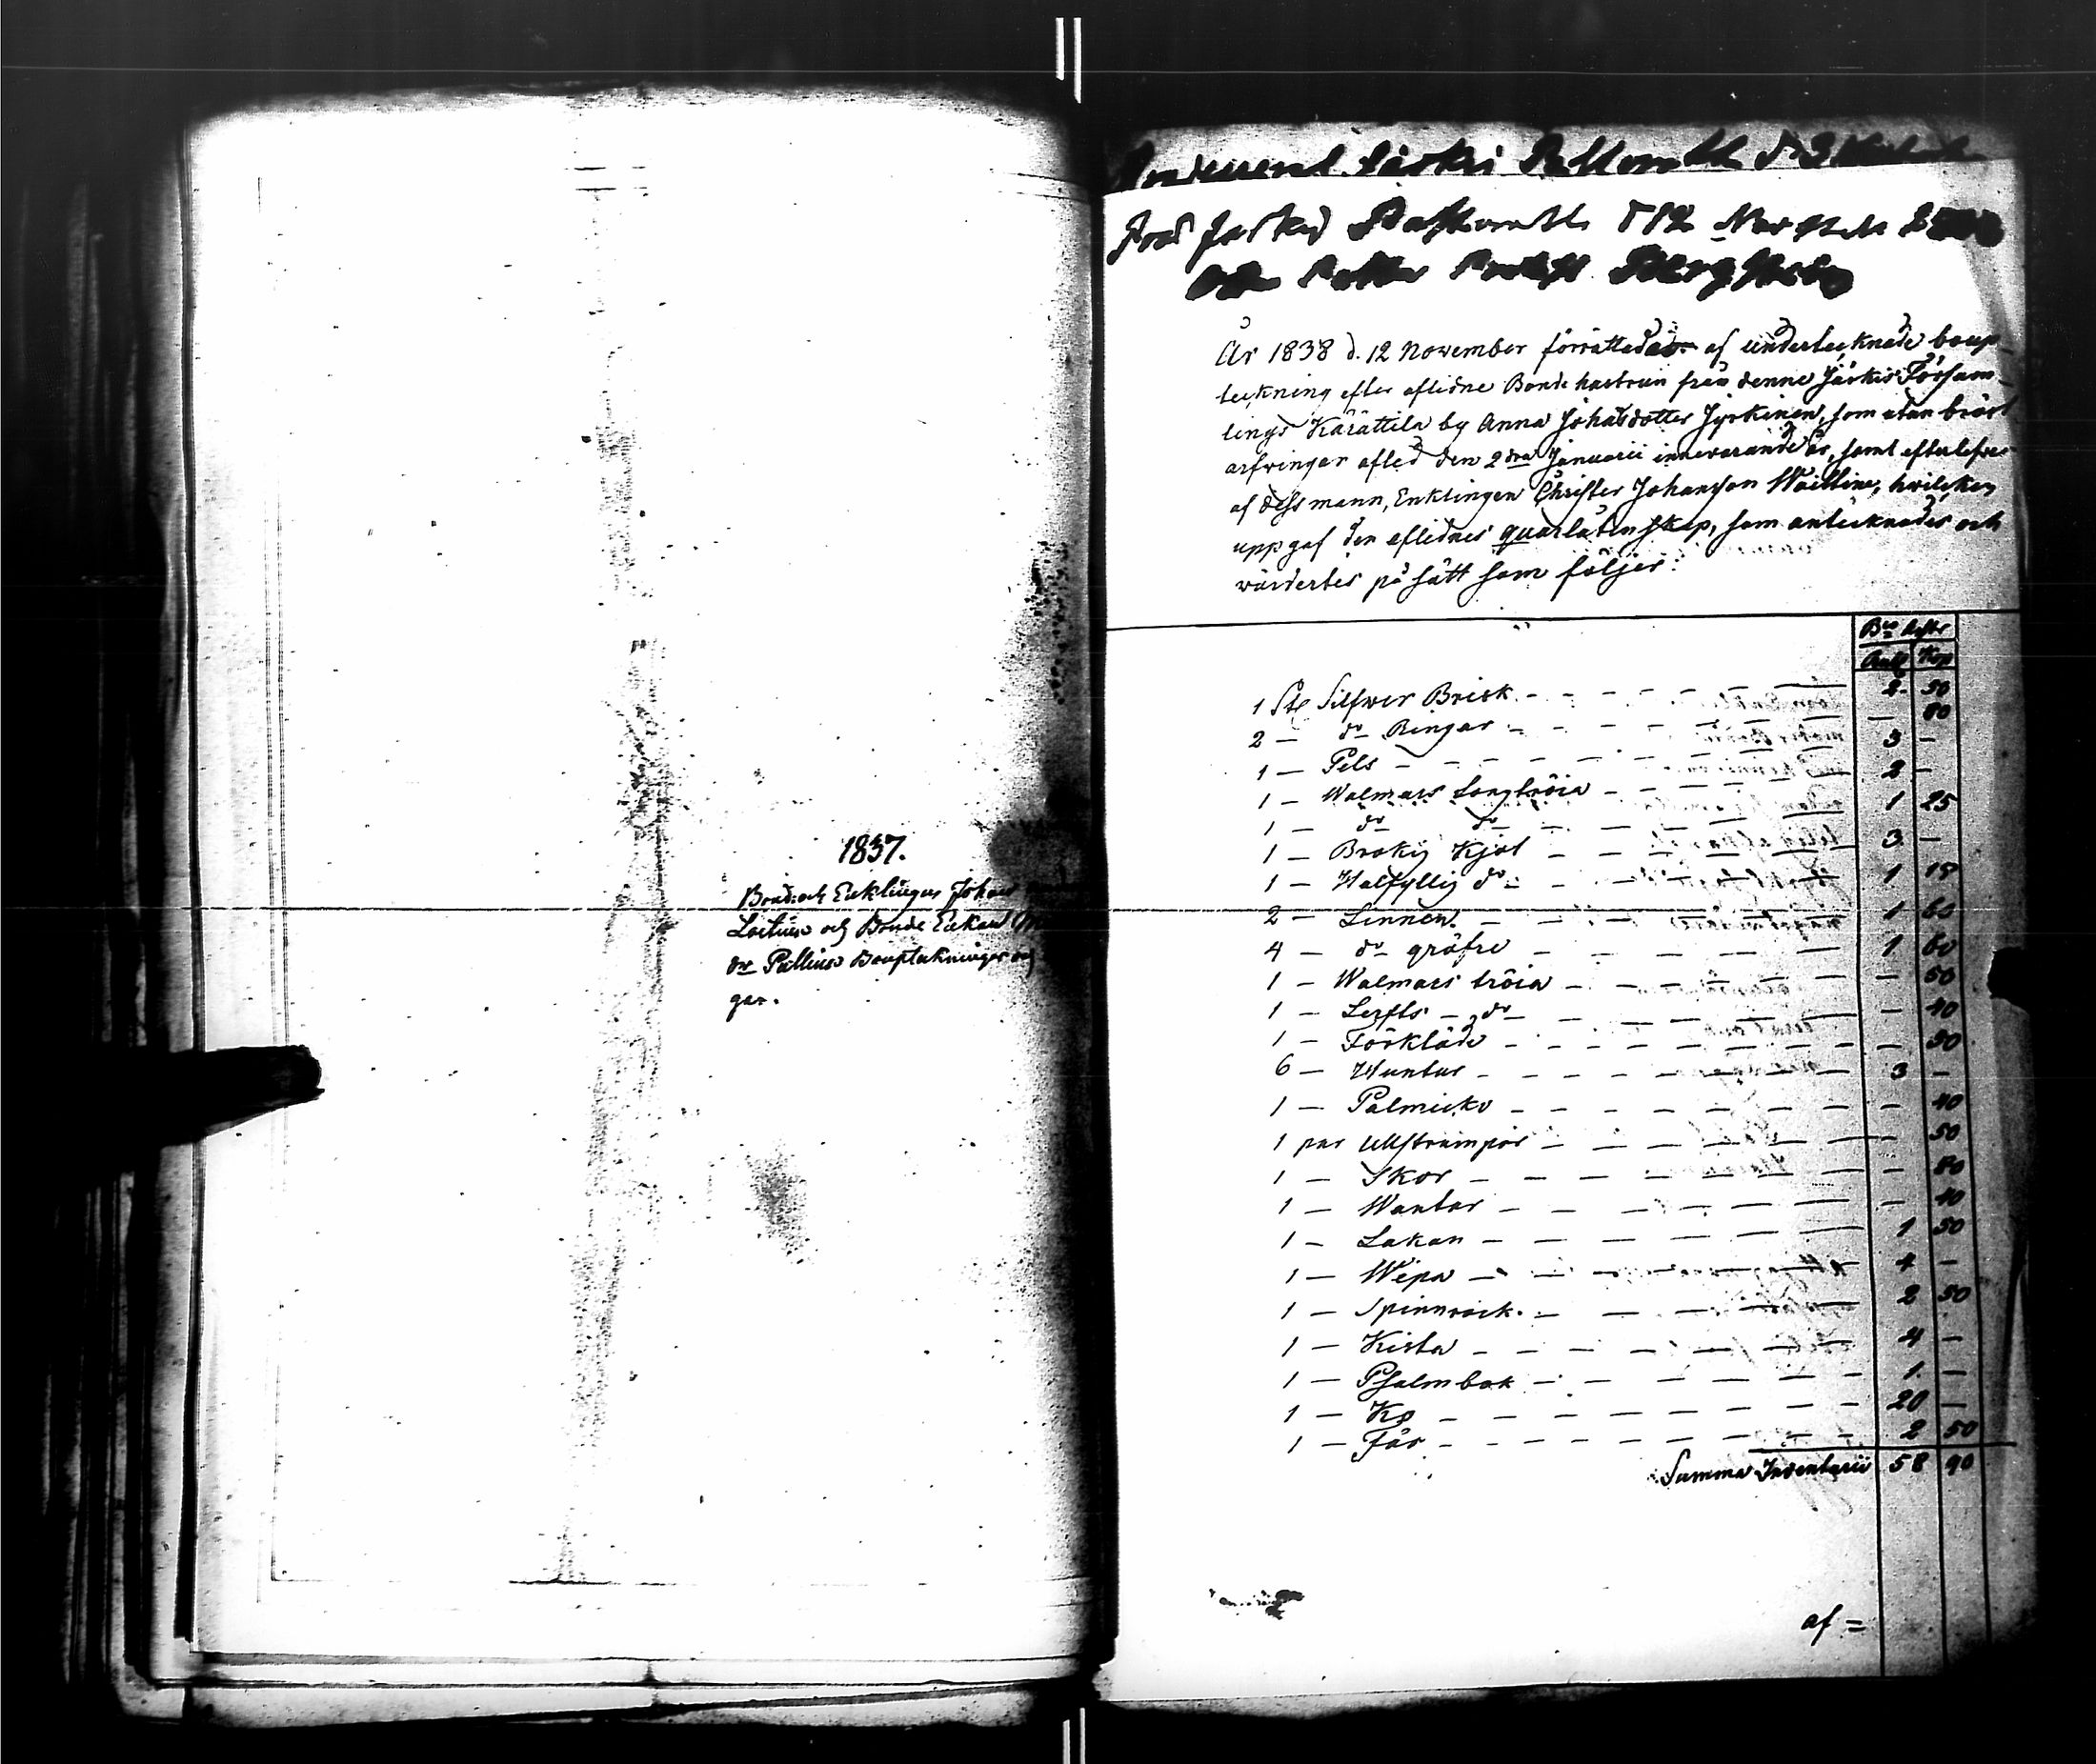 1837.
Bonde och Enklingen Johan
Loetius och Bonde Enkan
dr Pellius Bouptekningar och
gar.
År 1838 d. 12 November förrättades af undertecknade boup-
teckning efter aflidne Bonde hustrun från denne Jäskis Försam-
lings Kärättilä by Anna Johansdotter Jyrkinen, som utan bröst
arfwingar afled den 2dra Januarii innevarande år, samt efterlefwes
af dess mann, Enklingen Christer Johansson Wäittine, hwilcken
uppgaf den aflidnes quarlåtenskap, som antecknades och
wärdertes på sätt som följer:
Bco Assr
Rub Kop
1 St Silfwer Brisk - - - 2 50
2 — do Ringar - - - — 80
1 — Pels - - - 3 —
1 — Walmars Longtröia - - - 2 —
1 — do do - - - 1 25
1 — Brokig Kjol - - - 3 —
1 — Halfyllig do - - - 1 15
2 — Linnen - - - 1 60
4 — do gröfre - - - 1 60
1 — Walmars tröia - - - — 50
1 — Lerfts do - - - — 40
1 — Förkläde - - - — 50
6 — Huntur - - - 3 —
1 — Palmicko - - - — 40
1 par Ullstrumpor - - - — 50
1 — Skor - - - — 80
1 — Wantar - - - — 40
1 — Lakan - - - 1 50
1 — Wepa - - - 4 —
1 — Spinnrock - - - 2 50
1 — Kista - - - 4 —
1 — Psalmbok - - - 1 —
1 — Ko - - - 20 —
1 — Får - - - 2 50
Summa Inventarii 58 90
af =